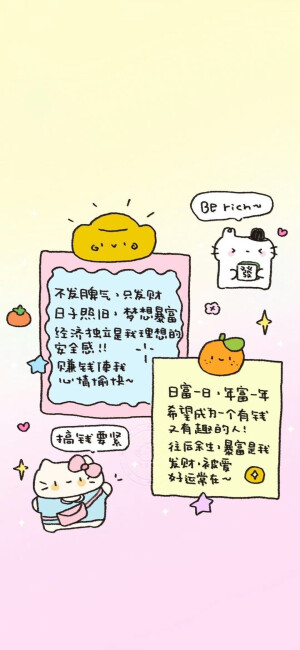 BE rich~
發
不发脾气，只发财
日子照旧，梦想暴富
经济独立是我理想的
安全感!!
赚钱使我
心情愉快~
日富一日，年富一年
希望成为一个有钱
又有趣的人!
往后余生，暴富是我
发财，被爱
好运常在~
搞钱要紧